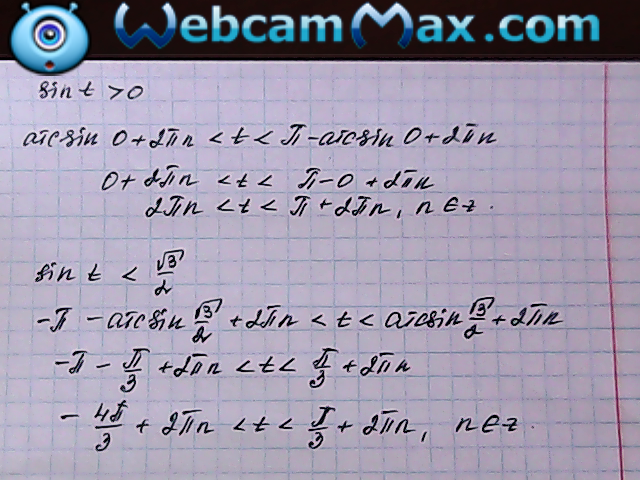 WebcamMax.com
sin t > 0
arcsin 0 + 2πn < t < π - arcsin 0 + 2πn
0 + 2πn < t < π - 0 + 2πn
2πn < t < π + 2πn, n ∈ z.
sin t < √3/2
-π - arcsin √3/2 + 2πn < t < arcsin √3/2 + 2πn
-π - π/3 + 2πn < t < π/3 + 2πn
- 4π/3 + 2πn < t < π/3 + 2πn, n ∈ z.